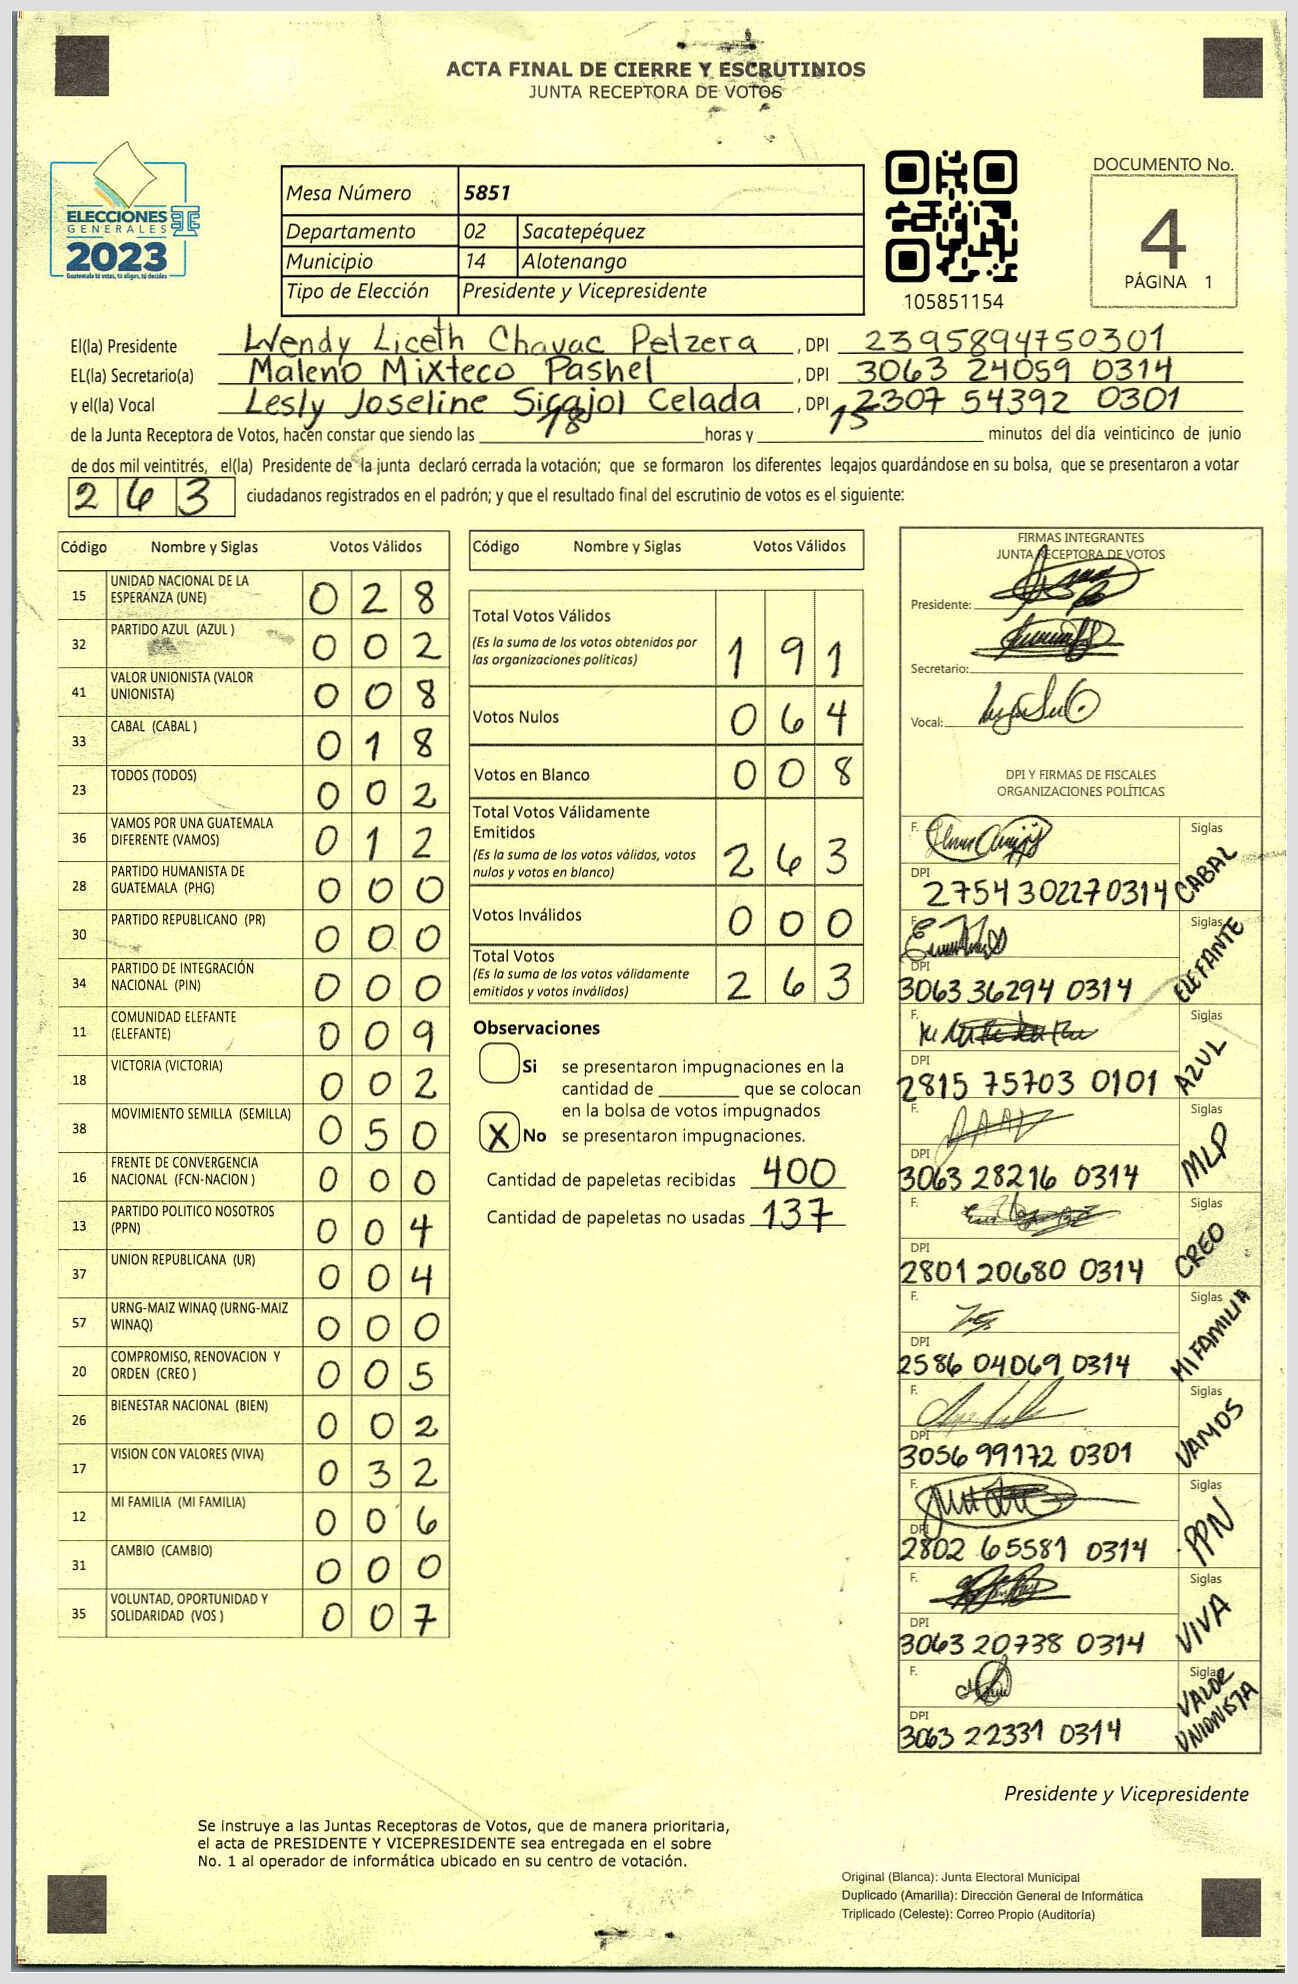 ACTA FINAL DE CIERRE Y ESCRUTINIOS
JUNTA RECEPTORA DE VOTOS
ELECCIONES
GENERALES
2023
Guatemala tú votas, tú eliges, tú decides
Mesa Número 5851
Departamento 02 Sacatepéquez
Municipio 14 Alotenango
Tipo de Elección Presidente y Vicepresidente
105851154
DOCUMENTO No.
4
PÁGINA 1
El(la) Presidente Wendy Liceth Chavac Petzera, DPI 2395894750301
EL(la) Secretario(a) Maleno Mixteco Pashel, DPI 3063 24059 0314
y el(la) Vocal Lesly Joseline Sicajol Celada, DPI 2307 54392 0301
de la Junta Receptora de Votos, hacen constar que siendo las 18 horas y 15 minutos del día veinticinco de junio
de dos mil veintitrés, el(la) Presidente de la junta declaró cerrada la votación; que se formaron los diferentes legajos guardándose en su bolsa, que se presentaron a votar
263 ciudadanos registrados en el padrón; y que el resultado final del escrutinio de votos es el siguiente:
Código Nombre y Siglas Votos Válidos
15 UNIDAD NACIONAL DE LA ESPERANZA (UNE) 028
32 PARTIDO AZUL (AZUL ) 002
41 VALOR UNIONISTA (VALOR UNIONISTA) 008
33 CABAL (CABAL ) 018
23 TODOS (TODOS) 002
36 VAMOS POR UNA GUATEMALA DIFERENTE (VAMOS) 012
28 PARTIDO HUMANISTA DE GUATEMALA (PHG) 000
30 PARTIDO REPUBLICANO (PR) 000
34 PARTIDO DE INTEGRACIÓN NACIONAL (PIN) 000
11 COMUNIDAD ELEFANTE (ELEFANTE) 009
18 VICTORIA (VICTORIA) 002
38 MOVIMIENTO SEMILLA (SEMILLA) 050
16 FRENTE DE CONVERGENCIA NACIONAL (FCN-NACION ) 000
13 PARTIDO POLITICO NOSOTROS (PPN) 004
37 UNION REPUBLICANA (UR) 004
57 URNG-MAIZ WINAQ (URNG-MAIZ WINAQ) 000
20 COMPROMISO, RENOVACION Y ORDEN (CREO ) 005
26 BIENESTAR NACIONAL (BIEN) 002
17 VISION CON VALORES (VIVA) 032
12 MI FAMILIA (MI FAMILIA) 006
31 CAMBIO (CAMBIO) 000
35 VOLUNTAD, OPORTUNIDAD Y SOLIDARIDAD (VOS ) 007
Código Nombre y Siglas Votos Válidos
Total Votos Válidos
(Es la suma de los votos obtenidos por
las organizaciones políticas) 191
Votos Nulos 064
Votos en Blanco 008
Total Votos Válidamente
Emitidos
(Es la suma de los votos válidos, votos
nulos y votos en blanco) 263
Votos Inválidos 000
Total Votos
(Es la suma de los votos válidamente
emitidos y votos inválidos) 263
Observaciones
Si se presentaron impugnaciones en la
cantidad de ________ que se colocan
en la bolsa de votos impugnados
X No se presentaron impugnaciones.
Cantidad de papeletas recibidas 400
Cantidad de papeletas no usadas 137
FIRMAS INTEGRANTES
JUNTA RECEPTORA DE VOTOS
Presidente:
Secretario:
Vocal:
DPI Y FIRMAS DE FISCALES
ORGANIZACIONES POLÍTICAS
F. Siglas CABAL
DPI 2754 30227 0314
F. Siglas ELEFANTE
DPI 3063 36294 0314
F. Siglas AZUL
DPI 2815 75703 0101
F. Siglas MLP
DPI 3063 28216 0314
F. Siglas CREO
DPI 2801 20680 0314
F. Siglas MI FAMILIA
DPI 2586 04069 0314
F. Siglas VAMOS
DPI 3056 99172 0301
F. Siglas PPN
DPI 2802 65581 0314
F. Siglas VIVA
DPI 3063 20738 0314
F. Siglas VALOR UNIONISTA
DPI 3063 22331 0314
Presidente y Vicepresidente
Se instruye a las Juntas Receptoras de Votos, que de manera prioritaria,
el acta de PRESIDENTE Y VICEPRESIDENTE sea entregada en el sobre
No. 1 al operador de informática ubicado en su centro de votación.
Original (Blanca): Junta Electoral Municipal
Duplicado (Amarilla): Dirección General de Informática
Triplicado (Celeste): Correo Propio (Auditoría)